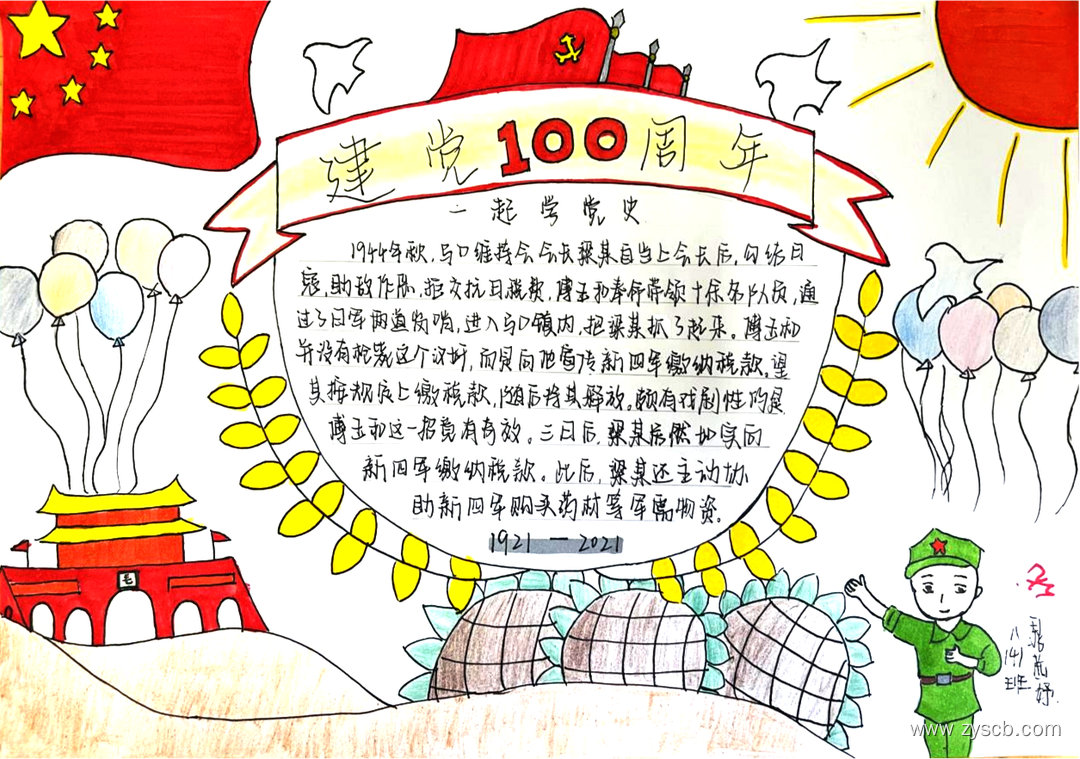 建党100周年
一起学党史
1944年秋,马口维持会会长梁某自当上会长后,勾结日
寇,助敌作队,拒交抗日税款,傅玉和奉命带领十余名队员,通
过了日军两道岗哨,进入马口镇内,把梁某抓了起来。傅玉和
并没有枪毙这个汉奸,而是向他宣传新四军缴纳税款,望
其按规定上缴税款,随后将其解放。颇有戏剧性的是
傅玉和这一招竟有奇效。三日后,梁某居然如实向
新四军缴纳税款。此后,梁某还主动协
助新四军购买药材等军需物资。
1921 — 2021
毛
八141班
www.zyscb.com